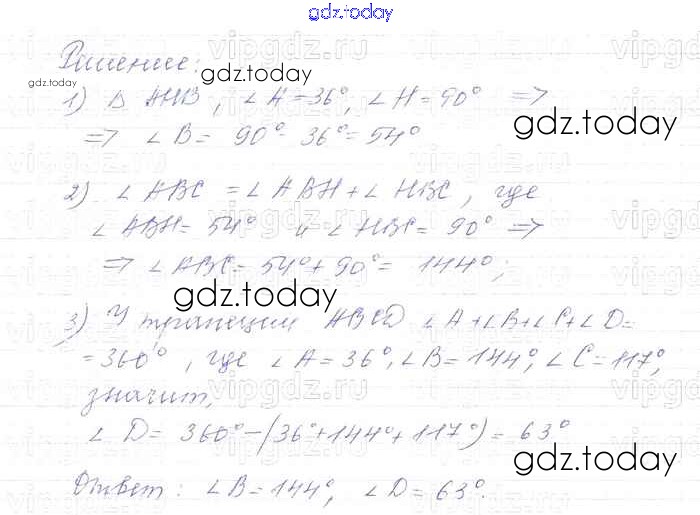 gdz.today
Решение:
gdz.today
gdz.today
1) Δ AHB, ∠A=36°, ∠H=90° =>
=> ∠B= 90°-36°=54°
gdz.today
2) ∠ABC = ∠ABH+∠HBC, где
∠ABH= 54° и ∠HBC= 90° =>
=> ∠ABC= 54°+90°= 144°;
gdz.today
3) У трапеции ABCD ∠A+∠B+∠C+∠D=
=360°, где ∠A=36°, ∠B=144°, ∠C=117°,
gdz.today
значит,
∠D= 360°-(36°+144°+117°)=63°
gdz.today
Ответ: ∠B=144°, ∠D=63°.